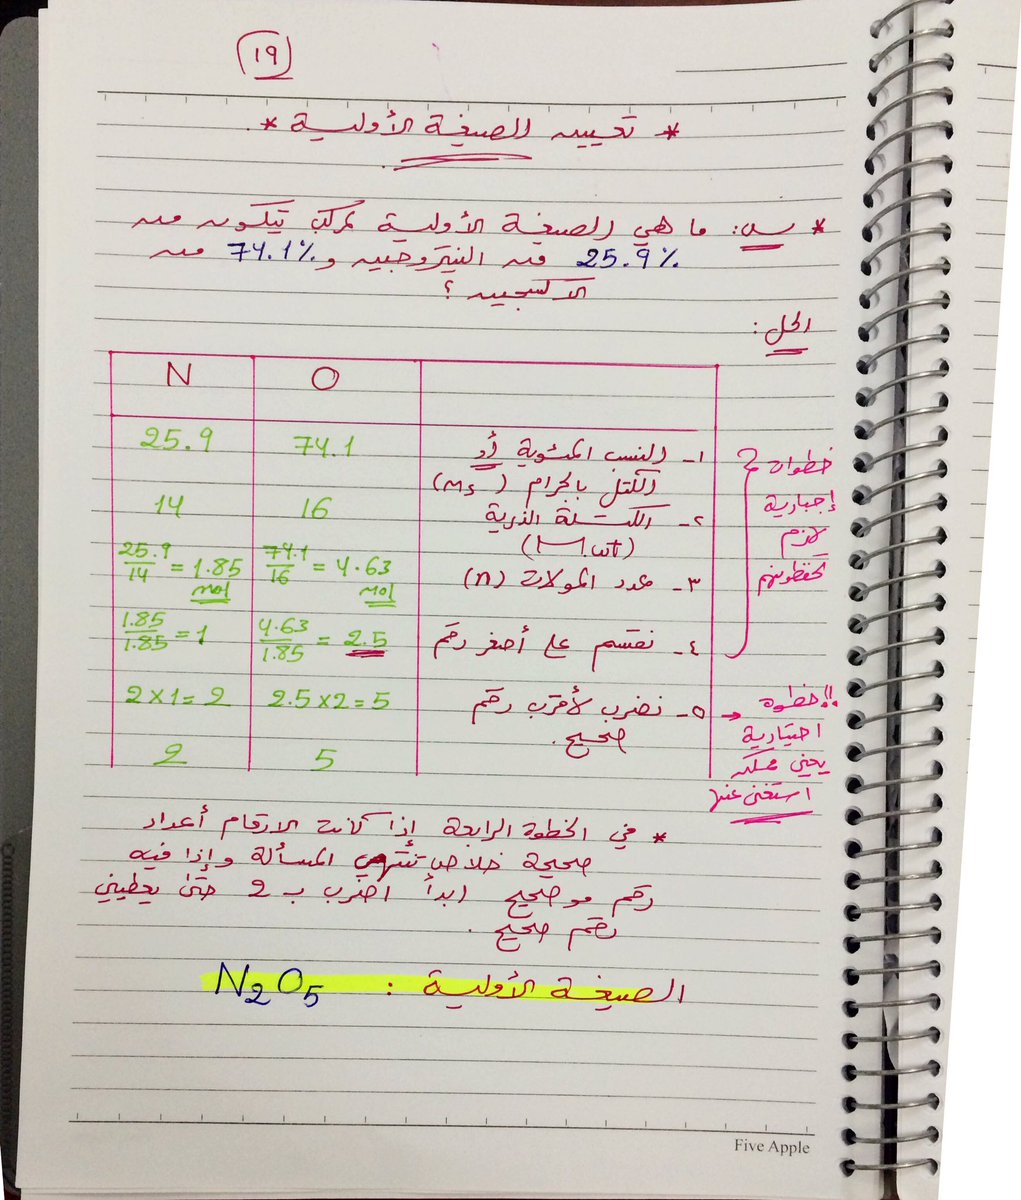 ١٩
* تعيين الصيغة الأولية *
* س: ما هي الصيغة الأولية لمركب يتكون من
25.9% من النيتروجين و 74.1% من
الاكسجين ؟
الحل:
N O
25.9 74.1 ١- النسب المئوية أو
الكتل بالجرام (ms)
14 16 ٢- الكتلة الذرية
(M.wt)
25.9/14 = 1.85 mol 74.1/16 = 4.63 mol ٣- عدد المولات (n)
1.85/1.85 = 1 4.63/1.85 = 2.5 ٤- نقسم على أصغر رقم
2×1=2 2.5×2=5 ٥- نضرب لأقرب رقم
صحيح.
2 5
خطوات
إجبارية
لازم
تحفظونهم
خطوة!!
اختيارية
يعني ممكن
استغنى عنها
* في الخطوة الرابعة إذا كانت الارقام أعداد
صحيحة خلاص تنتهي المسألة وإذا فيه
رقم مو صحيح ابدأ اضرب بـ 2 حتى يعطيني
رقم صحيح.
الصيغة الأولية : N2O5
Five Apple